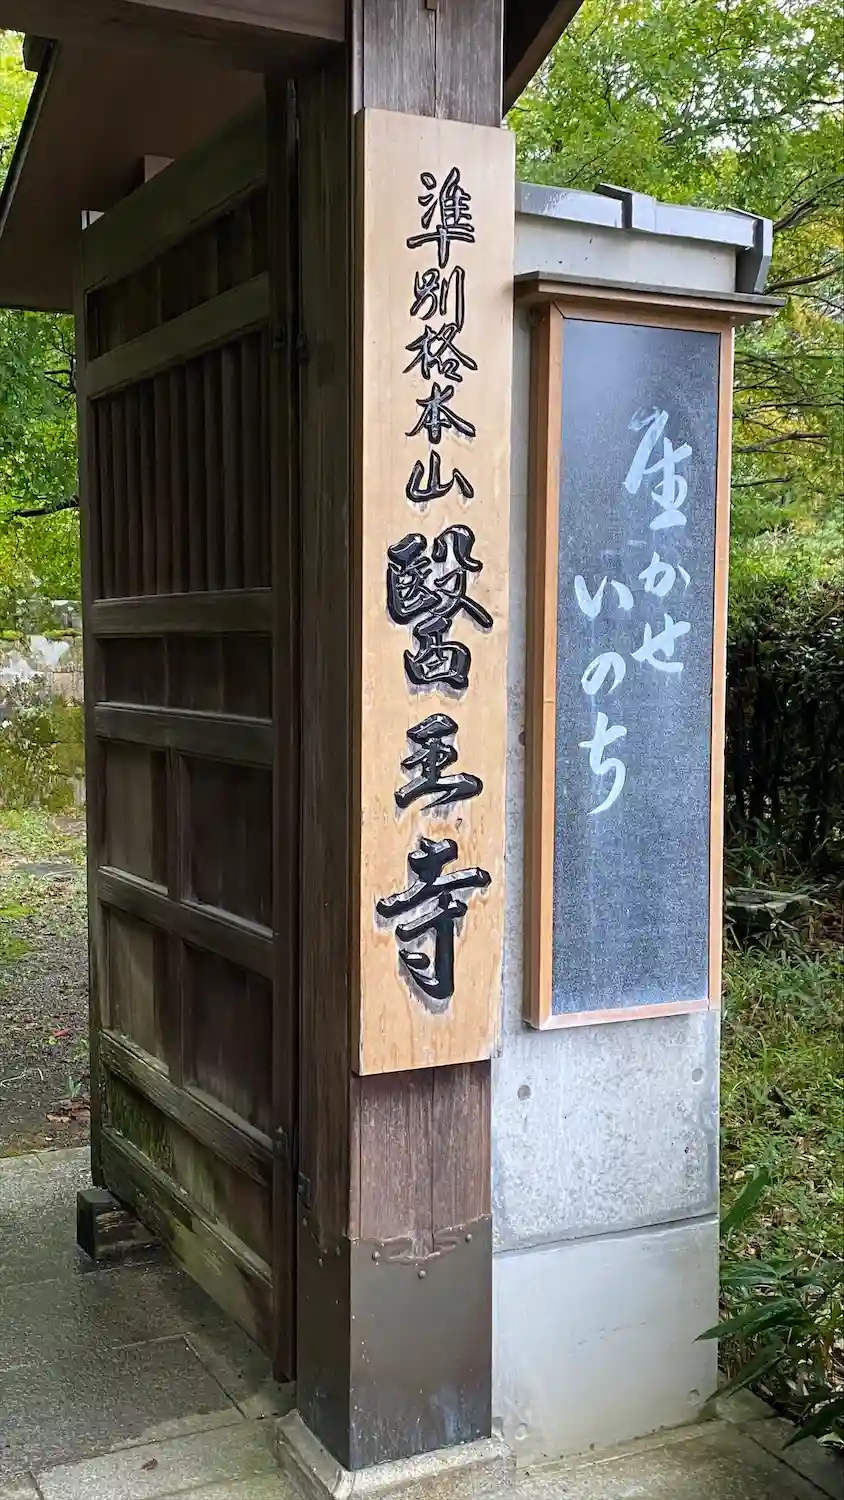 準別格本山 醫王寺
生かせ
いのち